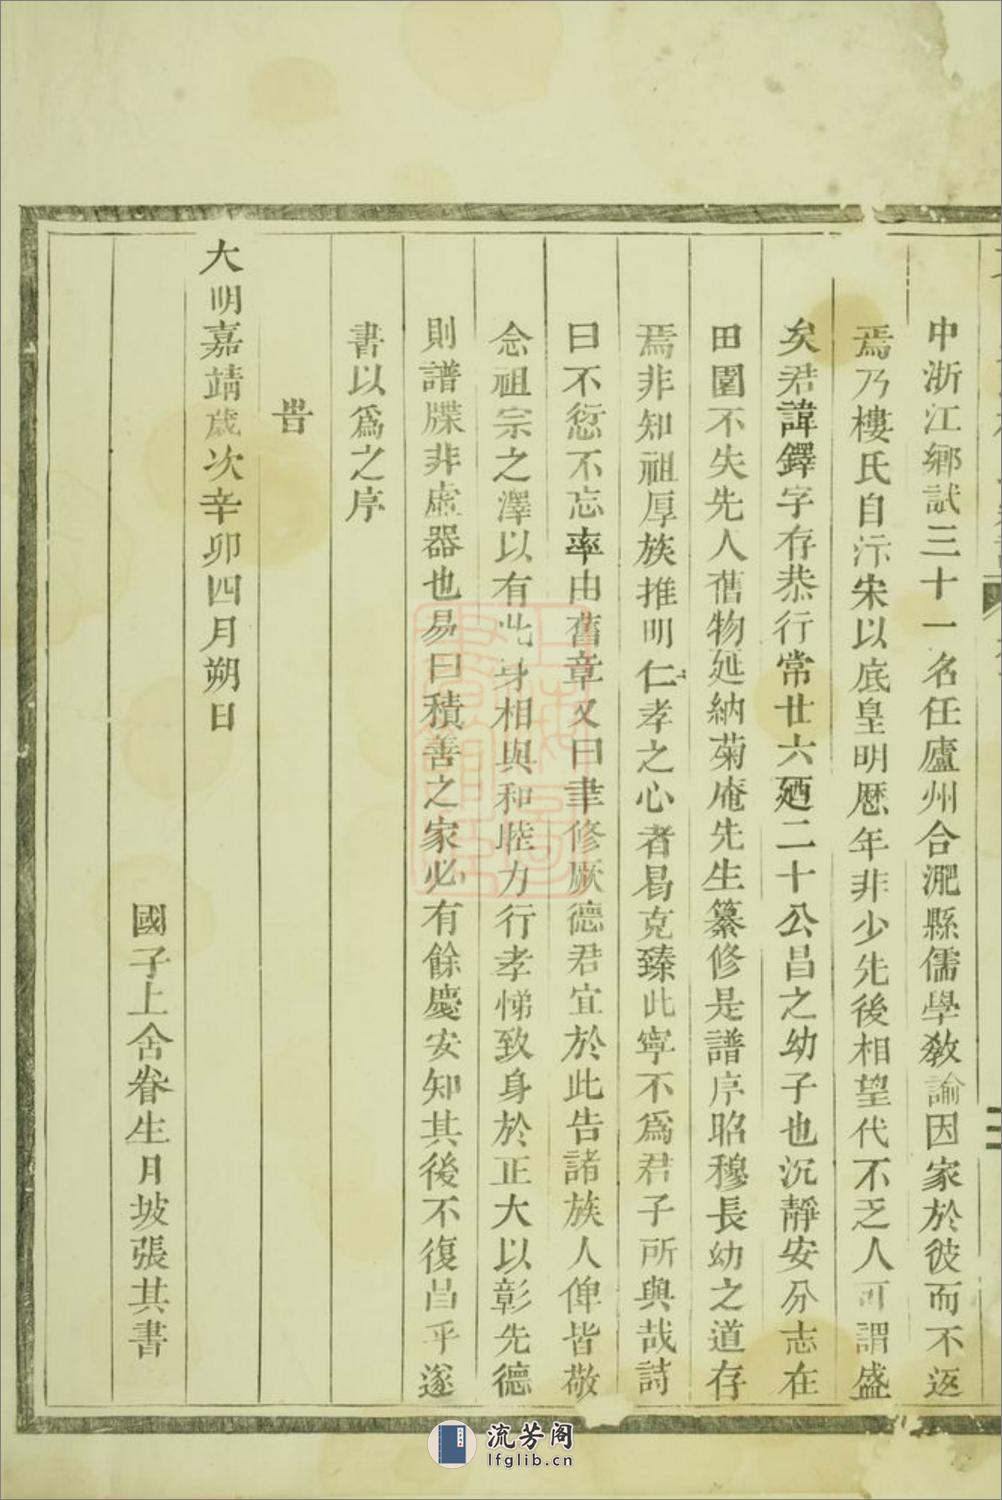 中浙江鄉試三十一名任廬州合淝縣儒學敎諭因家於彼而不返
焉乃樓氏自汴宋以底皇明厯年非少先後相望代不乏人可謂盛
矣君諱鐸字存恭行常廿六廼二十公昌之幼子也沉靜安分志在
田園不失先人舊物延納菊庵先生纂修是譜序昭穆長幼之道存
焉非知祖厚族推明仁孝之心者曷克臻此寧不爲君子所與哉詩
曰不愆不忘率由舊章又曰聿修厥德君宜於此告諸族人俾皆敬
念祖宗之澤以有此身相與和睦力行孝悌致身於正大以彰先德
則譜牒非虛器也易曰積善之家必有餘慶安知其後不復昌乎遂
書以爲之序
旹
大明嘉靖歲次辛卯四月朔日
國子上舍眷生月坡張其書
流芳阁
lfglib.cn